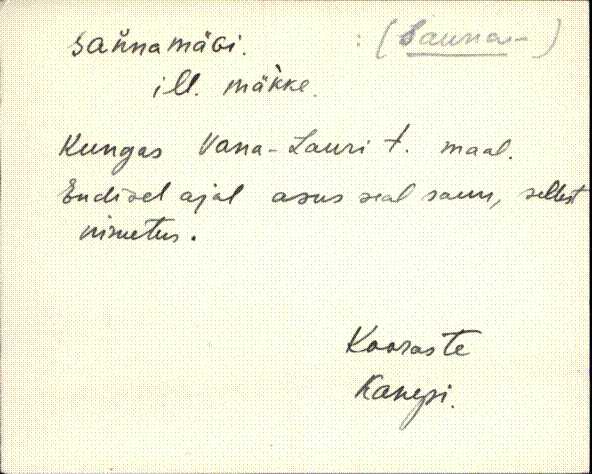 sannamägi. : (Sauna-)
ill. mäkke.
Kungas Vana-Lauri t. maal.
Endisel ajal asus seal saun, sellest
nimetus.
Kooraste
Kanepi.